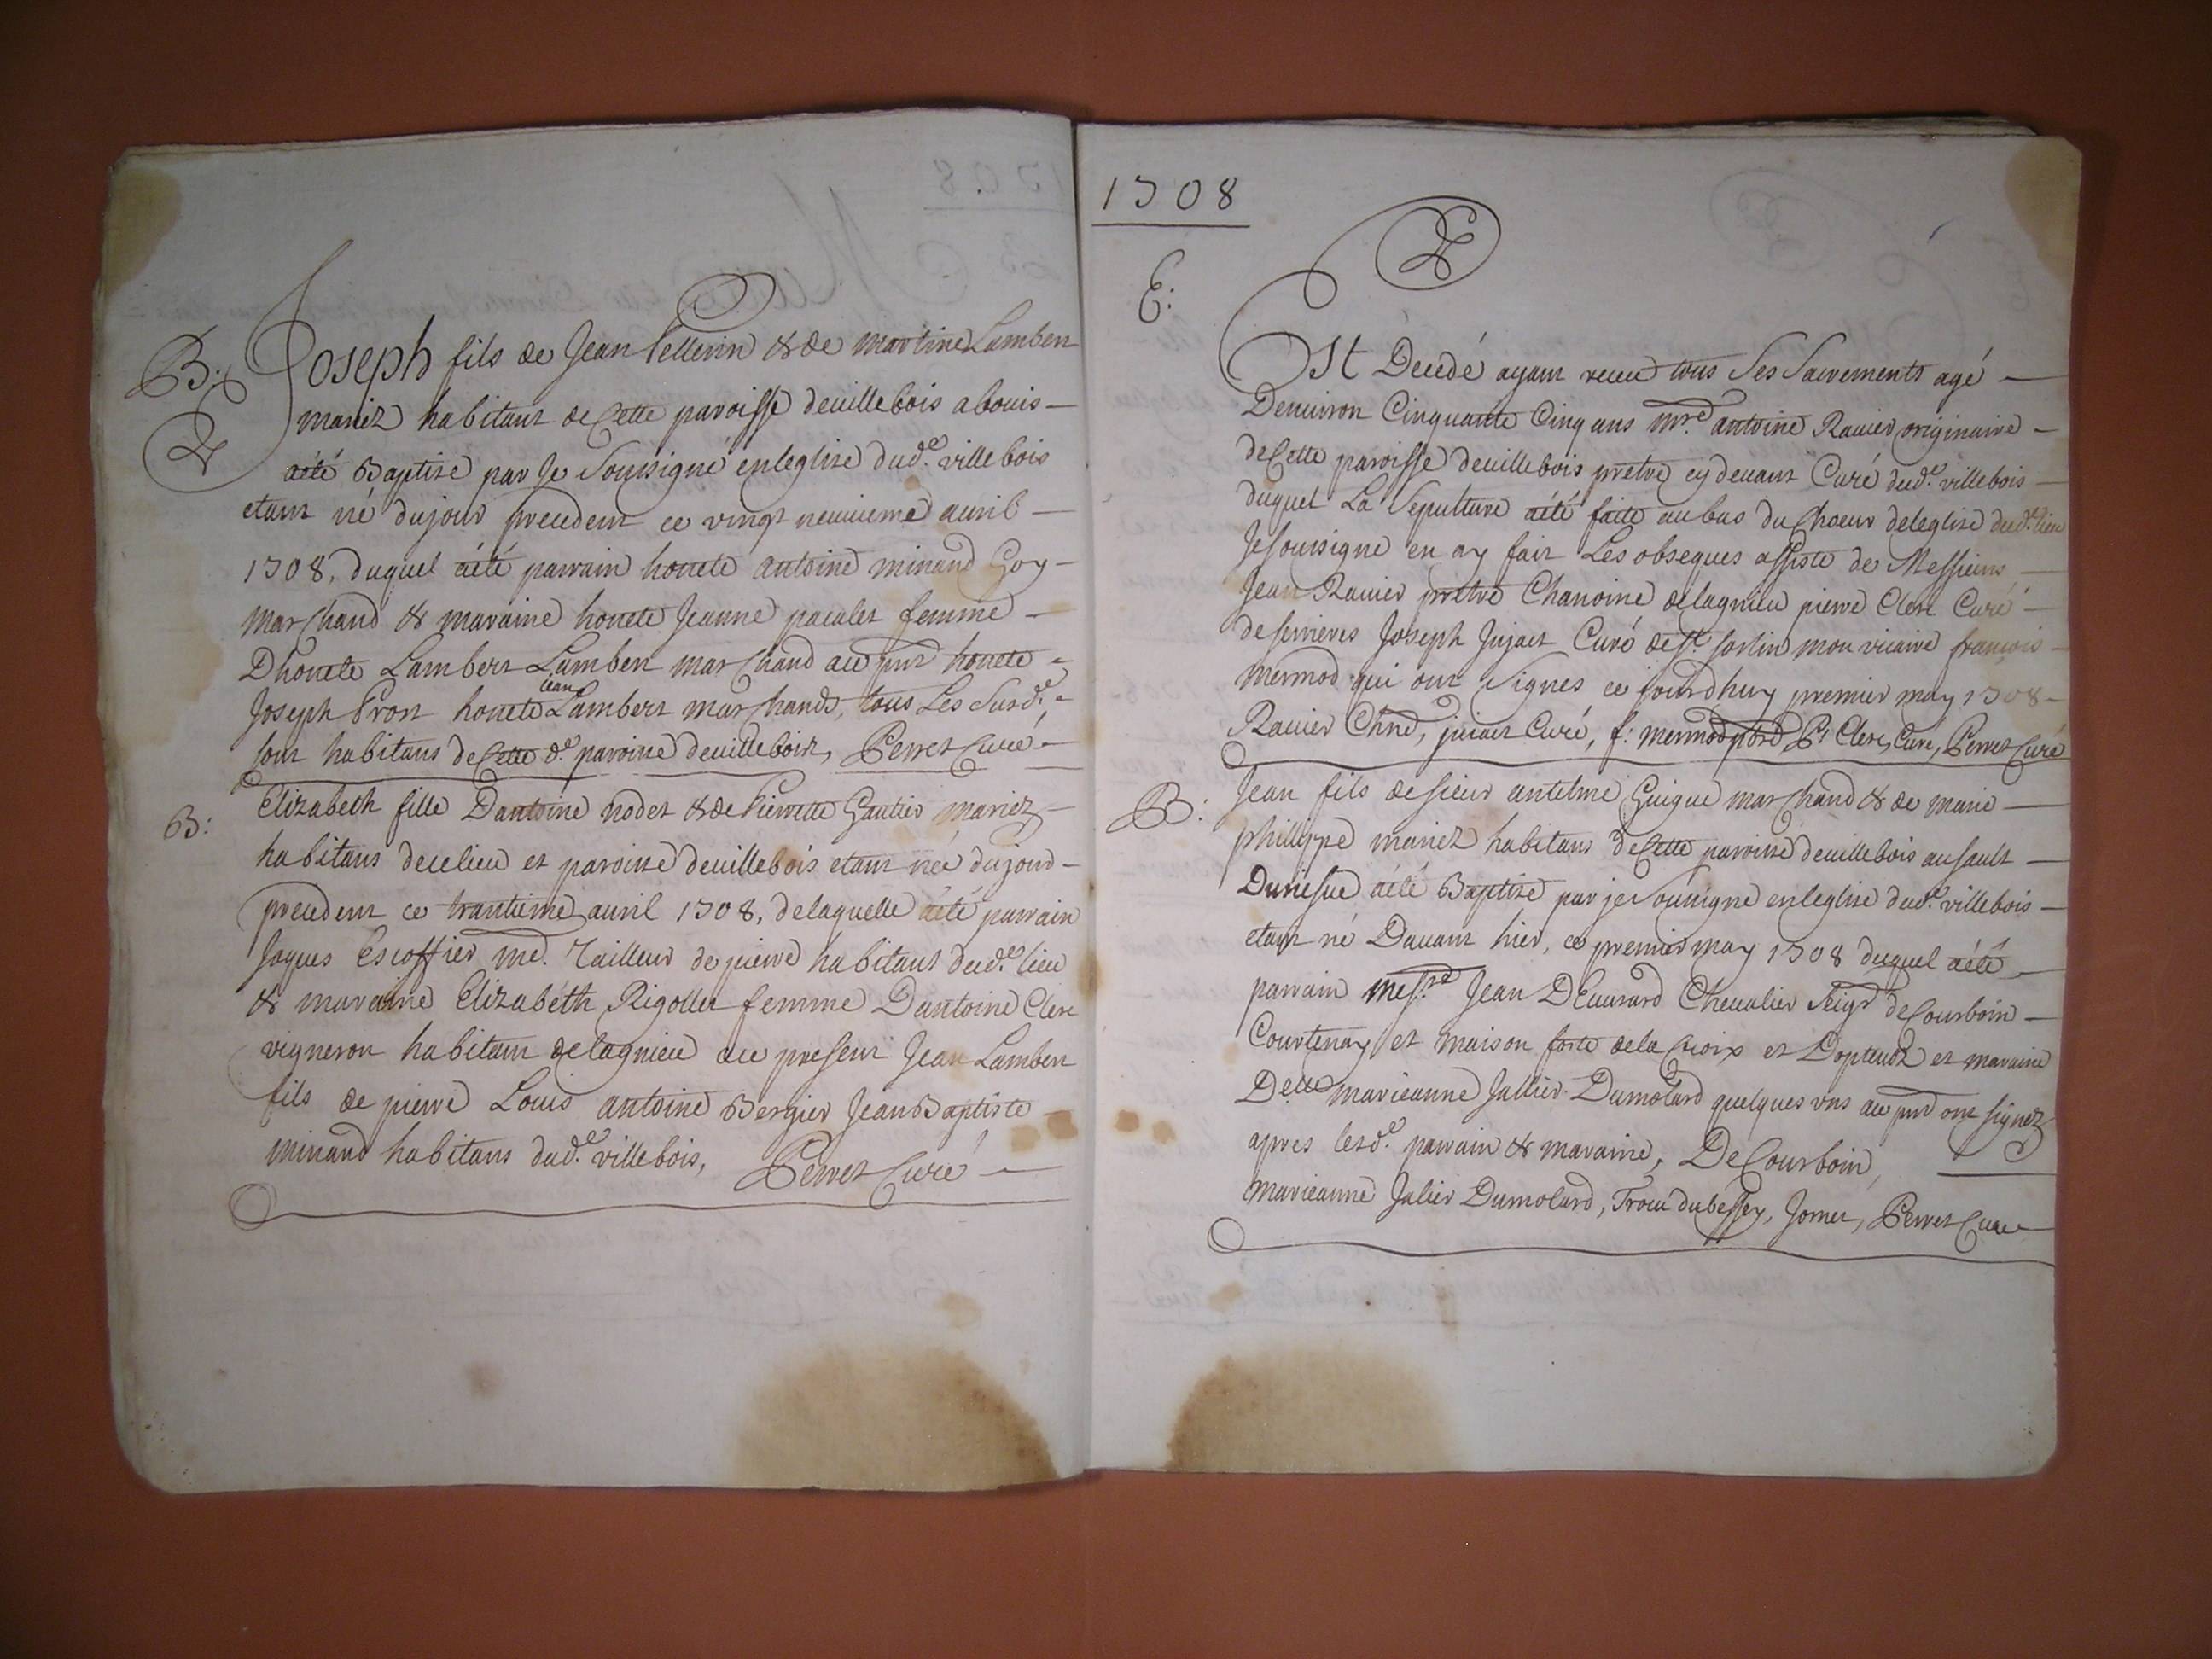 B: Joseph fils de Jean Pellerin & de martine Lambert
mariez habitant de Cette paroisse deuillebois abouis
aété Baptise par Je Soussigné enleglise dud.e villebois
etant né dujour precedent ce vingt neuuieme auril
1708, duquel aété parrain honete antoine minand Goy
Marchand & maraine honete Jeanne pacalet femme
Dhonete Lambert Lambert marchand au pnt honete
Joseph Pron honete Jean Lambert marchands, tous Les Susd.e
sont habitans de Cette d.e paroisse deuillebois, Perret Curé
B: Elizabeth fille Dantoine nodet & de Pierrette Gautier mariez
habitans decelieu et paroisse deuillebois etant née dujour
precedent ce trantieme auril 1708, delaquelle aété parrain
Jaques Escoffier me. Tailleur de pierre habitant dud.e lieu
& maraine Elizabéth Rigollet femme Dantoine Clerc
vigneron habitant delagnieu au present Jean Lambert
fils de pierre Louis antoine Bergier Jean Baptiste
minand habitans dud.e villebois, Perret Curé
1708
E:
Est Decedé ayant receu tous Ses Sacrements agé
Denuiron Cinquante Cinq ans mre. antoine Rauier originaire
deCette paroisse deuillebois pretre cy deuant Curé dud.e villebois
duquel La Sepulture aété faite aubas du Choeur deleglise dud.e lieu
Jesoussigne en ay fait Les obseques assisté de Messieurs
Jean Rauier pretre Chanoine delagnieu pierre Clerc Curé
deserrieres Joseph Jujat Curé de St. sorlin mon vicaire francois
mermod qui ont Signes ce jourdhuy premier may 1708
Rauier Chne, jujat Curé, f: mermod ptre P. Clerc, Curé, Perret Curé
B: Jean fils desieur antelme Guigue marchand & de marie
phillippe mariez habitans de Cette paroisse deuillebois ausault
Durosne aété Baptise par je Soussigne enleglise dud.e villebois
etant né Dauant hier, ce premier may 1708 duquel aété
parrain mess.re Jean DEuurard Cheualier Seigr deCourboin
Courtenay et maison forte dela Croix et Dopteuoz et maraine
Delle marieanne Jallier Dumolard quelques vns au pnt ont signez
apres lesd.e parrain & maraine, DeCourboin,
marieanne Jalier Dumolard, Trocu dubessey, Jomet, Perret Curé